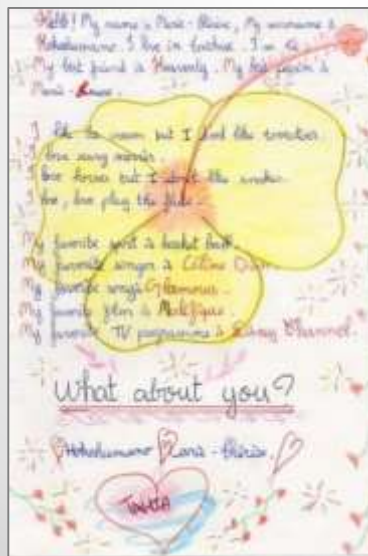 Hello! My name is Marie-Thérèse. My surname is
Hokahumano. I live in
My best friend is Heavenly. My best cousin is
Marie-
I like the but I don't like
I love scary movies.
I love horses but I don't like snakes.
I love, love play the flute.
My favorite sport is basket ball.
My favorite singer is Céline Dion.
My favorite song is Glamorous.
My favorite film is Maléfique.
My favorite TV programme is Disney Channel.
What about you?
Hokahumano Marie-Thérèse.